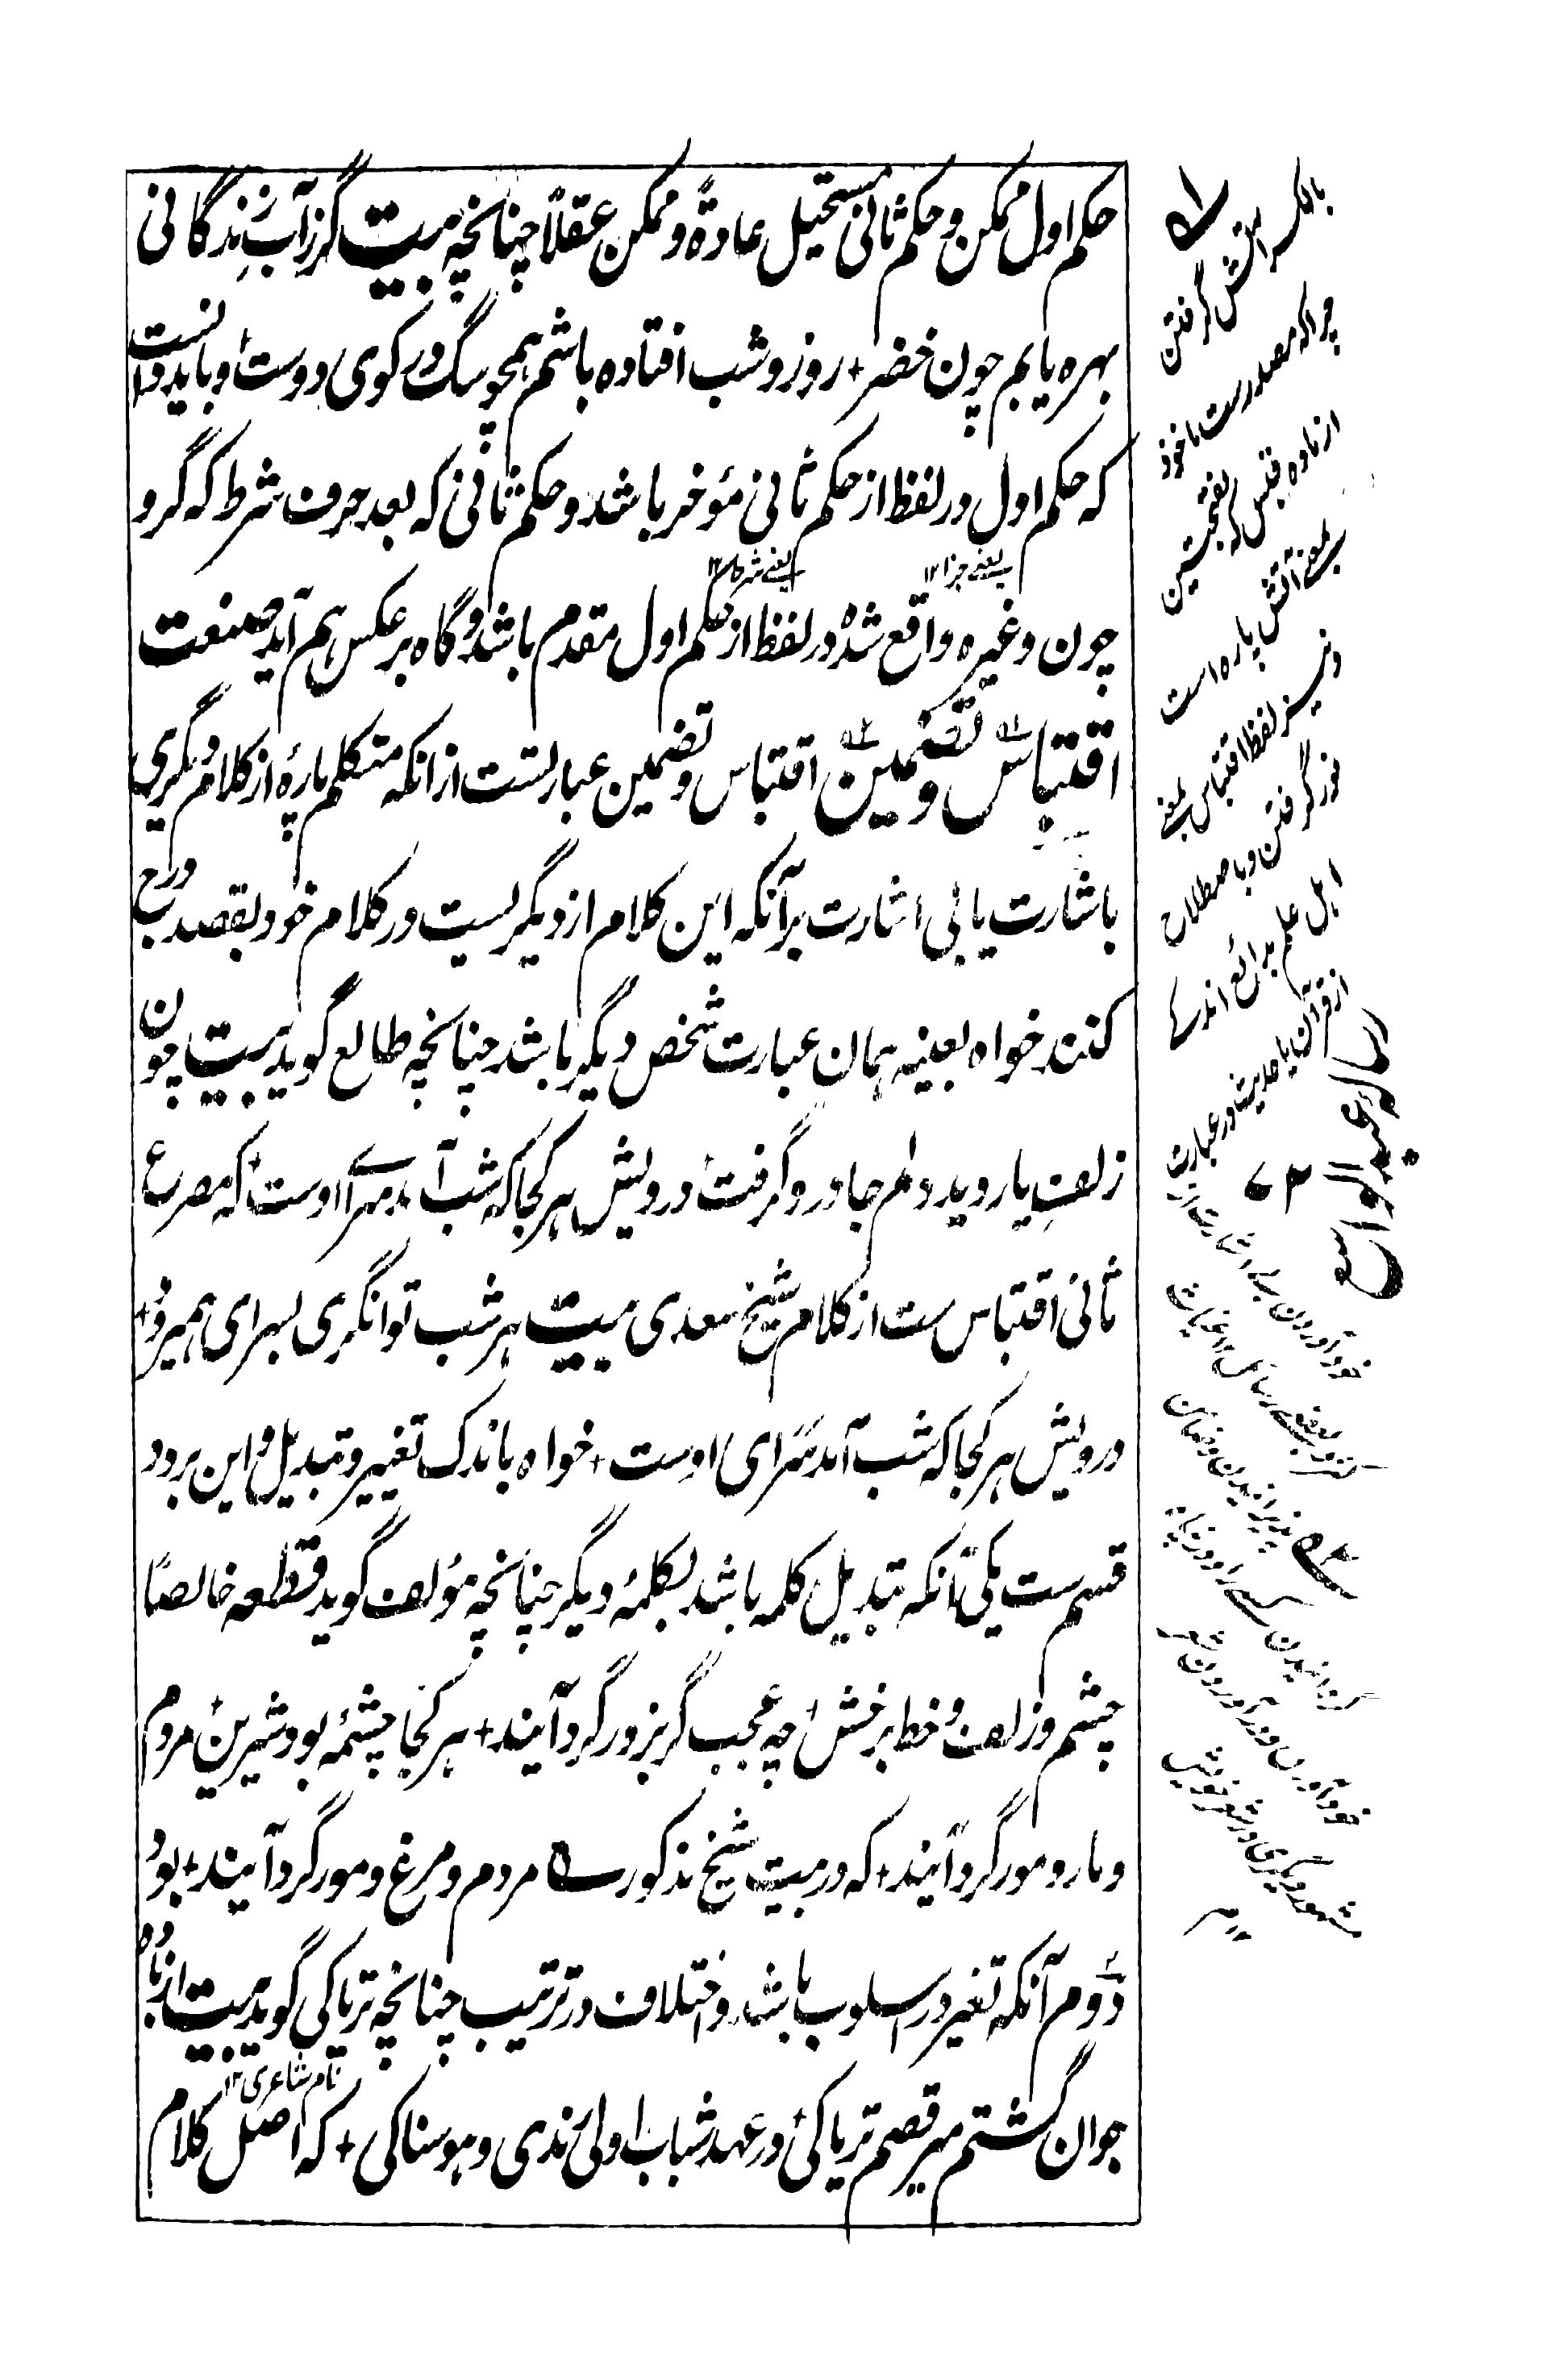 حکم اول ممکن و حکم ثانی مستحیل عادةً و ممکن عقلاً چنانچه بیت گر ز آب زندگانی
بهره یابم چون خضر + روز و شب افتاده باشم همچو سگ در کوی دوست و باید دانست
که حکم اول در لفظ از حکم ثانی مؤخر باشد و حکم ثانی که بعد حرف شرط که گر و
یعنی جزا ۱۲ یعنی شرط ۱۲
چون و غیره واقع شده در لفظ از حکم اول مقدم باشد و گاه برعکس هم آید صنعت
اقتباس و تضمین اقتباس و تضمین عبارتست از انکه متکلم پارۂ از کلام دیگری
باشارت یا بی اشارت برآنکه این کلام از دیگریست در کلام خود بقصد درج
کنند خواه بعینه همان عبارت شخص دیگر باشد چنانچه طالع گوید بیت چون
زلف یار دید دلم جا درو گرفت درویش هر کجا که شب آمد سرای اوست + که مصرع
ثانی اقتباس ست از کلام شیخ سعدی بیت هر شب توانگری بسرای همیرود +
درویش هر کجا که شب آمد سرای اوست + خواه باندک تغییر و تبدیل و این بر دو
قسم ست یکی آنکه تبدیل کلمه باشد بکلمۂ دیگر چنانچه مؤلف گوید قطعه خالصًا
چشم و زلف و خط برخش چه عجب گر بزور گرد آیند + هر کجا چشمۂ بود شیرین مردم
و مار و مور گرد آیند + که در بیت شیخ مذکور ے مردم و مرغ و مور گرد آیند + بود
دوم آنکه تغیر در اسلوب باشد و اختلاف در ترتیب چنانچه تریاکی گوید بیت از باده
نام شاعری ۱۲
جوان گشتم میرقصم تریاکی در عهد شباب اولی رندی و هوسناکی + که اصل کلام
بالکسر آتش گرفتن
چرا که مصدرست ماخوذ
از ماده قبس که بفتحتین
بمعنی آتش پاره است
و نیز لفظ اقتباس بمعنی
نور گرفتن و باصطلاح
اهل علم بدائع اندکے
از قرآن یا حدیث در عبارت
خود آوردن بے اشارت
رساله عبد الواسع